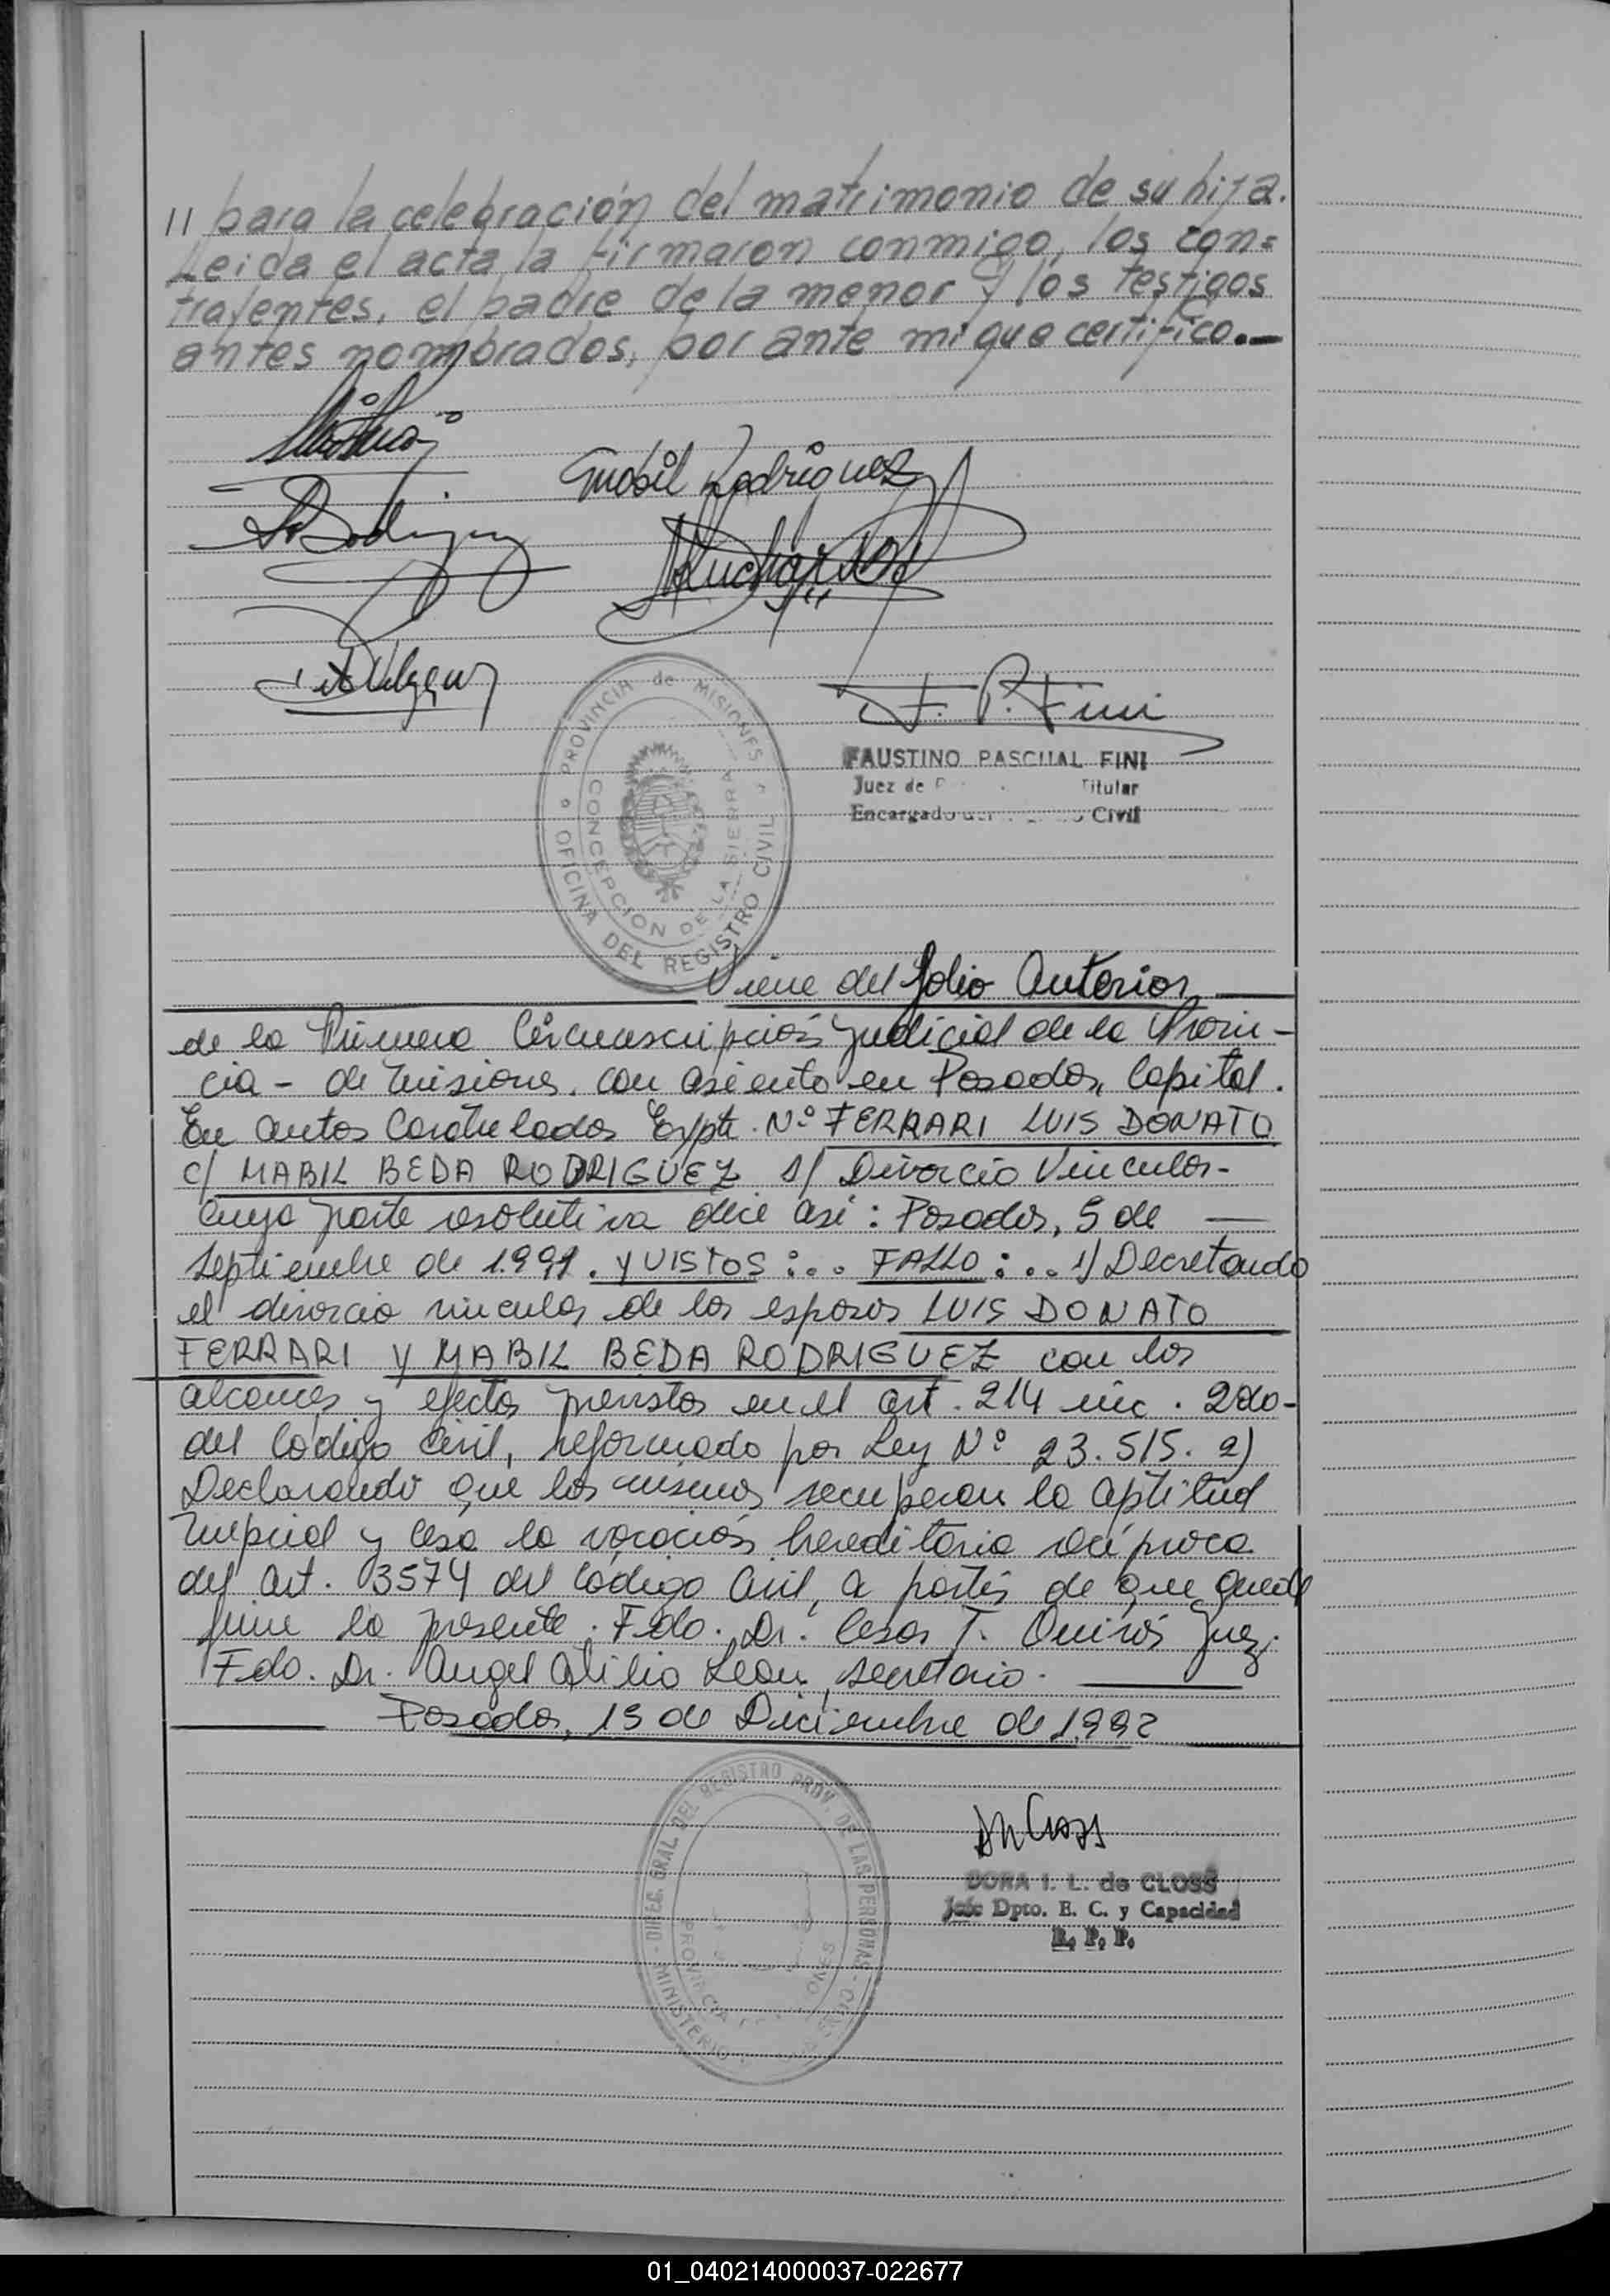 // para la celebración del matrimonio de su hija.
Leida el acta la firmaron conmigo, los con=
trayentes, el padre de la menor y los testigos
antes nombrados, por ante mi que certifico.-
Mabil Rodriguez
F. P. Fini
PROVINCIA de MISIONES
OFICINA DEL REGISTRO CIVIL
CONCEPCION DE LA SIERRA
FAUSTINO PASCUAL FINI
Juez de Titular
Encargado Civil
Viene del folio Anterior
de la Primera Circunscripción Judicial de la Provin-
cia - de Misiones, con asiento en Posadas, Capital.
En autos Caratulados Expte. Nº FERRARI LUIS DONATO
c/ MABIL BEDA RODRIGUEZ s/ Divorcio Vincular-
cuya parte resolutiva dice asi: Posadas, 5 de
septiembre de 1.991. Y VISTOS:.. FALLO:... 1) Decretando
el divorcio vincular de los esposos LUIS DONATO
FERRARI Y MABIL BEDA RODRIGUEZ con los
alcances y efectos previstos en el art. 214 inc. 2do-
del Código Civil, reformado por Ley Nº 23.515. 2)
Declarando que los mismos recuperan la aptitud
nupcial y cesa la vocación hereditaria recíproca
del art. 3574 del Código Civil, a partir de que quede
firme la presente. Fdo. Dr. Cesar T. Quirós Juez.
Fdo. Dr. Angel Atilio León, secretario.
Posadas, 15 de Diciembre de 1.992
DIREC. GRAL DEL REGISTRO PROV. DE LAS PERSONAS
MINISTERIO
PROVINCIA
DORA I. L. de CLOSS
Jefe Dpto. E. C. y Capacidad
R. P. P.
01_040214000037-022677